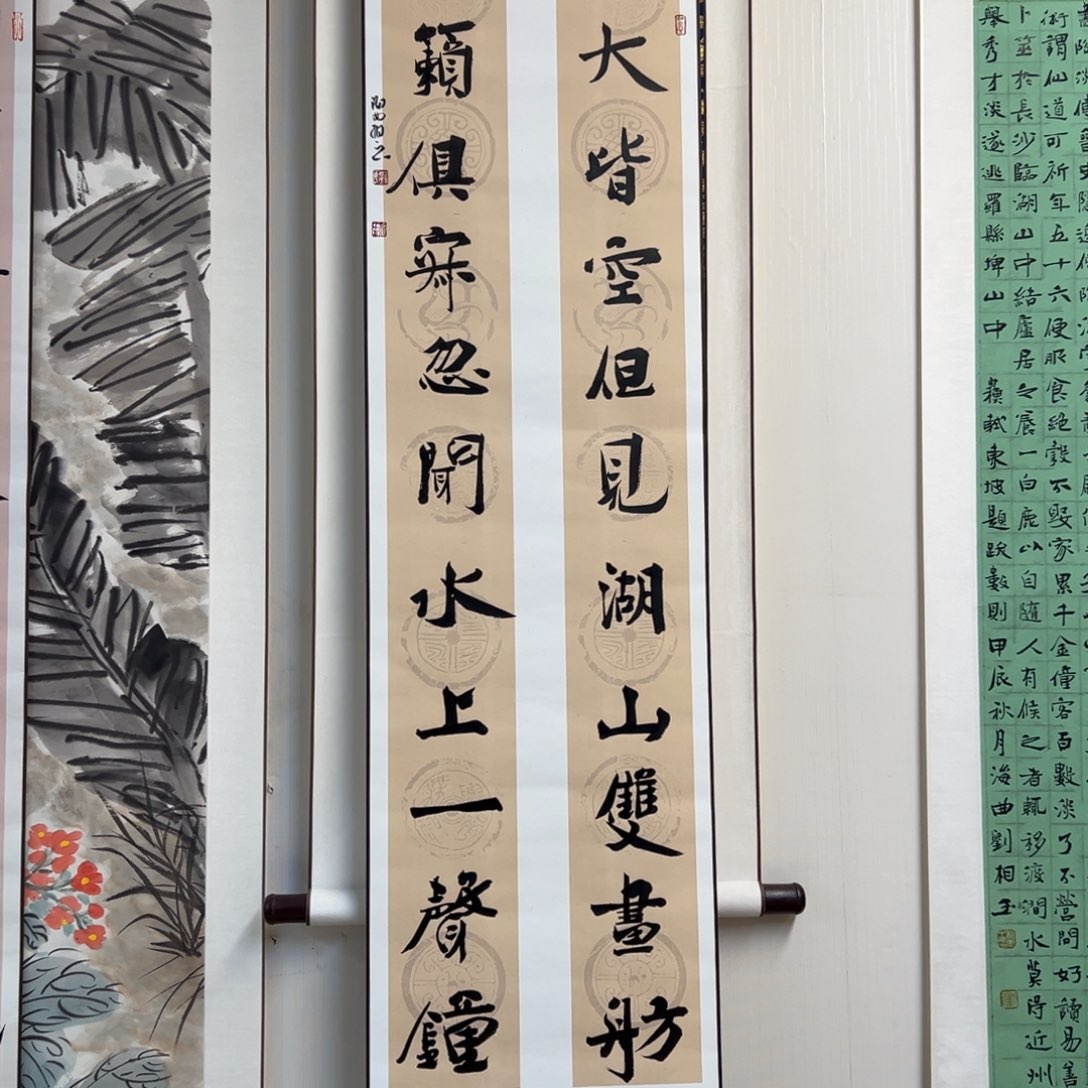 術謂仙道可祈年五十六便服食絕穀不娶家累千金僮客百數淡了不營問好讀易善
卜筮於長沙臨湖山中結廬居之養一白鹿以自隨人有候之者輒移渡澗水莫得近州
舉秀才淡遂逃羅縣埤山中蘇軾東坡題跋數則甲辰秋月海曲劉相玉
大皆空但見湖山雙畫舫
籟俱寂忽聞水上一聲鐘